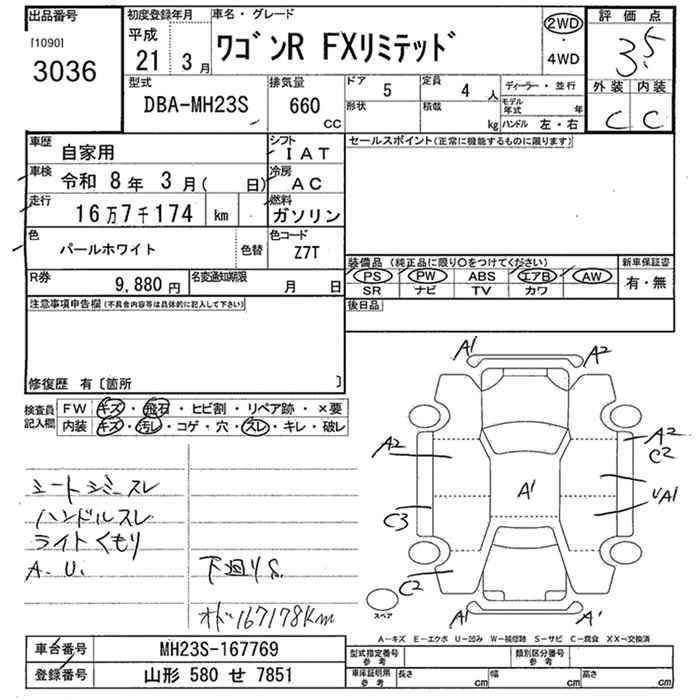 出品番号
[1090]
3036
初度登録年月
平成
21 3月
車名・グレード
ワゴンR FXリミテッド
2WD
・
4WD
評価点
3.5
外装 内装
C C
型式
DBA-MH23S
排気量
660
cc
ドア
5
形状
定員
4 人
積載
kg
ディーラー・並行
モデル年式 年
ハンドル 左・右
車歴
自家用
シフト
IAT
車検
令和 8年 3月( 日)
冷房
AC
走行
16万7千174 km
燃料
ガソリン
色
パールホワイト
色替
色コード
Z7T
R券
9,880円
名変通知期限
月 日
セールスポイント(正常に機能するものに限ります)
装備品 (純正品に限り○をつけてください)
新車保証書
PS PW ABS エアB AW
SR ナビ TV カワ
有・無
後日品
注意事項申告欄(不具合内容等は具体的に記入して下さい)
修復歴 有〔箇所 〕
検査員記入欄
FW キズ・飛石・ヒビ割・リペア跡・×要
内装 キズ・汚レ・コゲ・穴・スレ・キレ・破レ
シートシミ スレ
ハンドルスレ
ライトくもり
A.U.
下廻りS.
オド167178Km
A1 A2
A2
A2
C2
A1
UA1
C3
C2
A1 A1
スペア
A-キズ E-エクボ U-凹み W-補修跡 S-サビ C-腐食 XX-交換済
車台番号
MH23S-167769
登録番号
山形 580 せ 7851
型式指定番号
参考
類別区分番号
参考
車庫証明用
参考
長さ cm
幅 cm
高さ cm